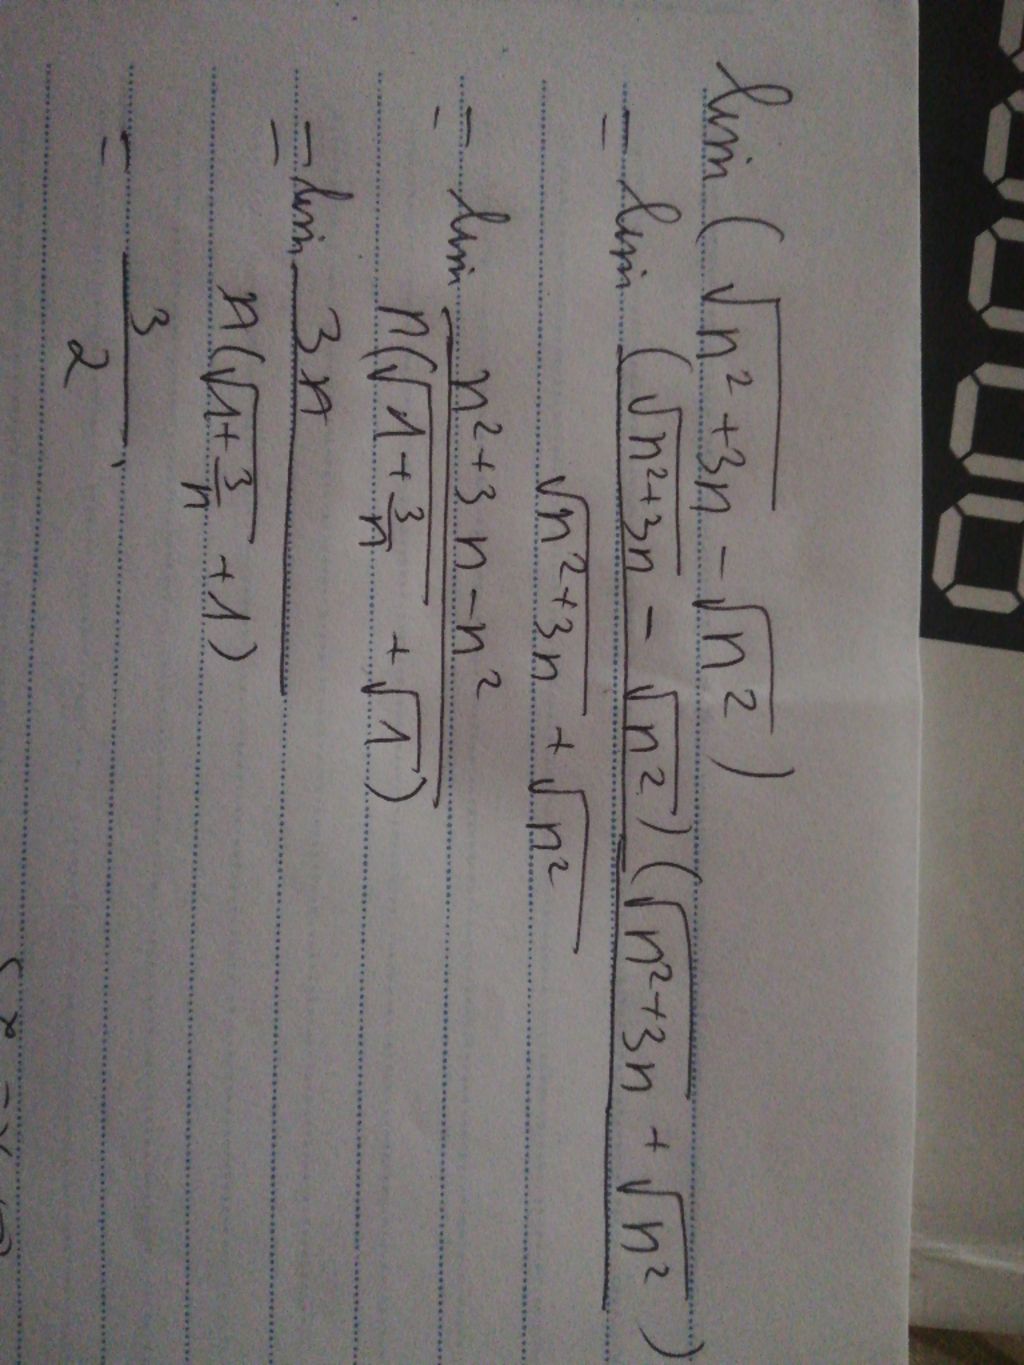 lim (√n²+3n - √n²)
= lim (√n²+3n - √n²)(√n²+3n + √n²)
√n²+3n + √n²
= lim n²+3n-n²
n(√1+3/n + √1)
= lim 3n
n(√1+3/n + 1)
= 3
2